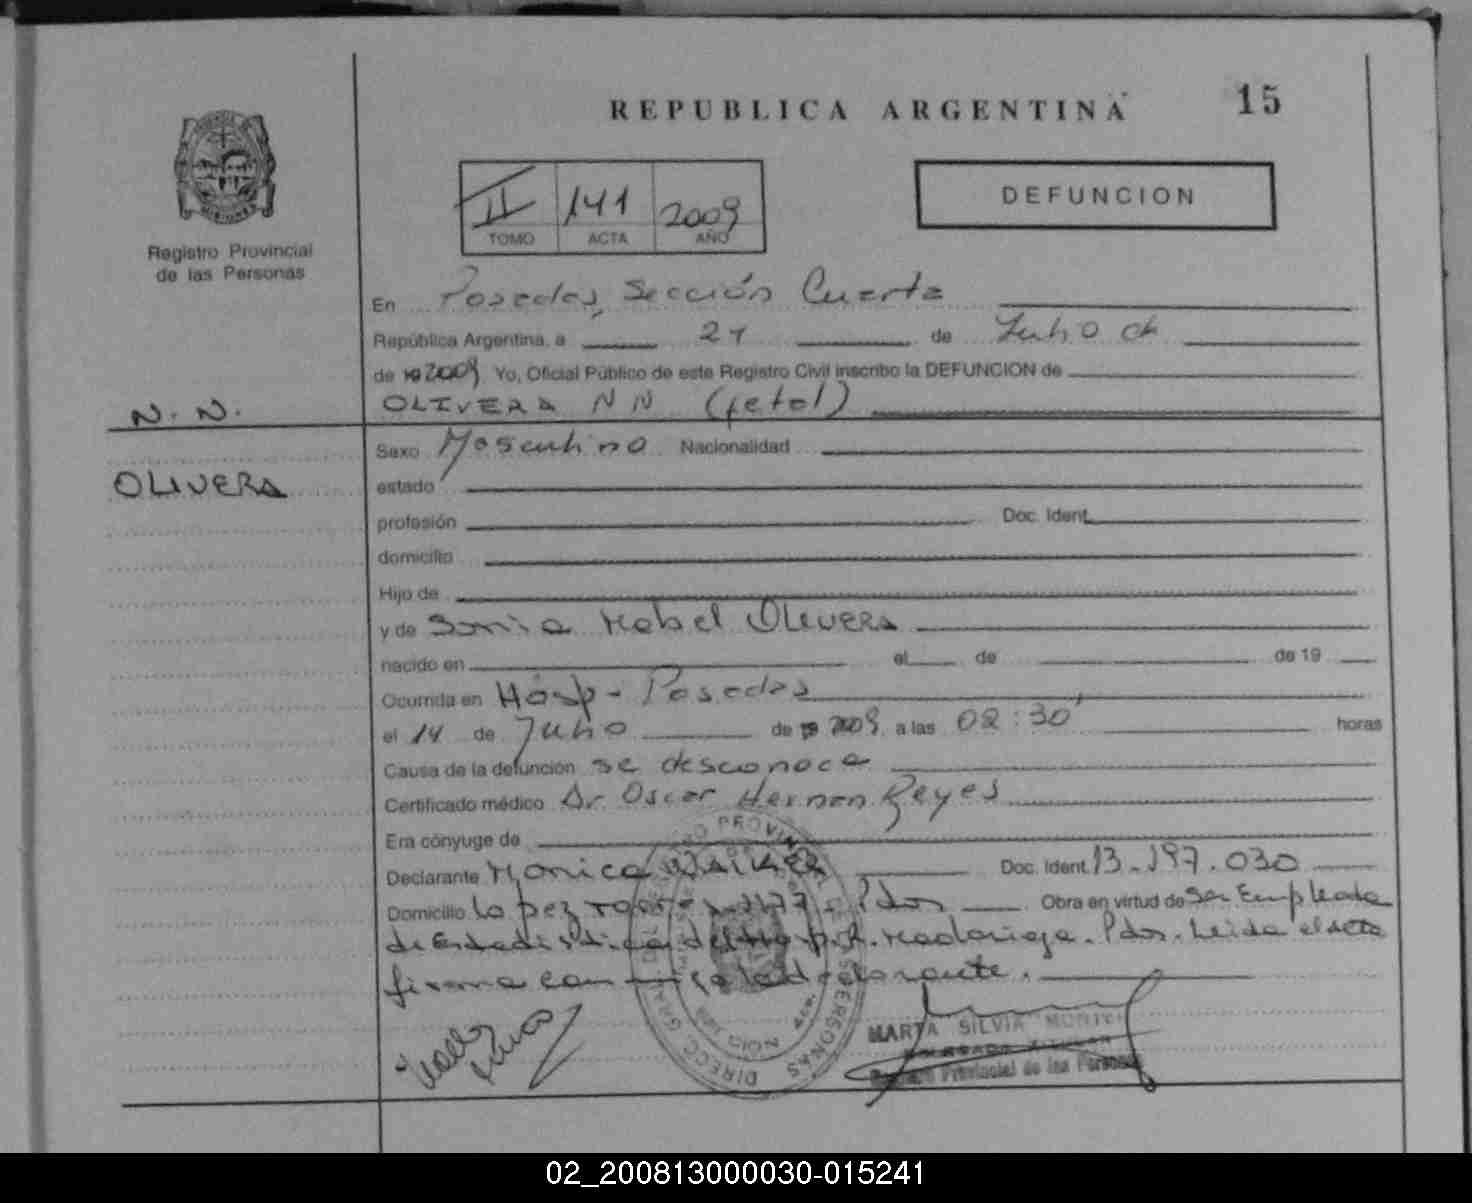 REPUBLICA ARGENTINA
15
II 141 2009
TOMO ACTA AÑO
DEFUNCION
Registro Provincial
de las Personas
En Posadas, Sección Cuarta
República Argentina, a 21 de Julio de
de 19 2009 Yo, Oficial Público de este Registro Civil inscribo la DEFUNCION de
N. N.
OLIVERA N N (fetal)
OLIVERA
Sexo Masculino Nacionalidad
estado
profesión Doc. Ident.
domicilio
Hijo de
y de Sonia Mabel OLIVERA
nacido en el de de 19
Ocurrida en Hosp - Posadas
el 14 de Julio de 19 2009 a las 02:30' horas
Causa de la defunción se desconoce
Certificado médico Dr. Oscar Hernan Reyes
Era cónyuge de
Declarante Monica Doc. Ident. 13.197.030
Domicilio Lopez Pdas Obra en virtud de Ser Empleada
de Estadistica del Hosp. R. Madariaga. Pdas. Leida el acta
firma conmigo la declarante.
MARTA SILVIA
Registro Provincial de las Personas
DIRECC. GRAL. DEL REGISTRO PROVINCIAL DE LAS PERSONAS
02_200813000030-015241